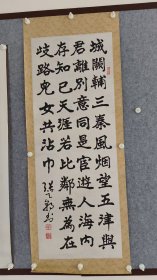 城闕輔三秦風烟望五津與
君離別意同是宦遊人海内
存知己天涯若比鄰無為在
歧路兒女共沾巾